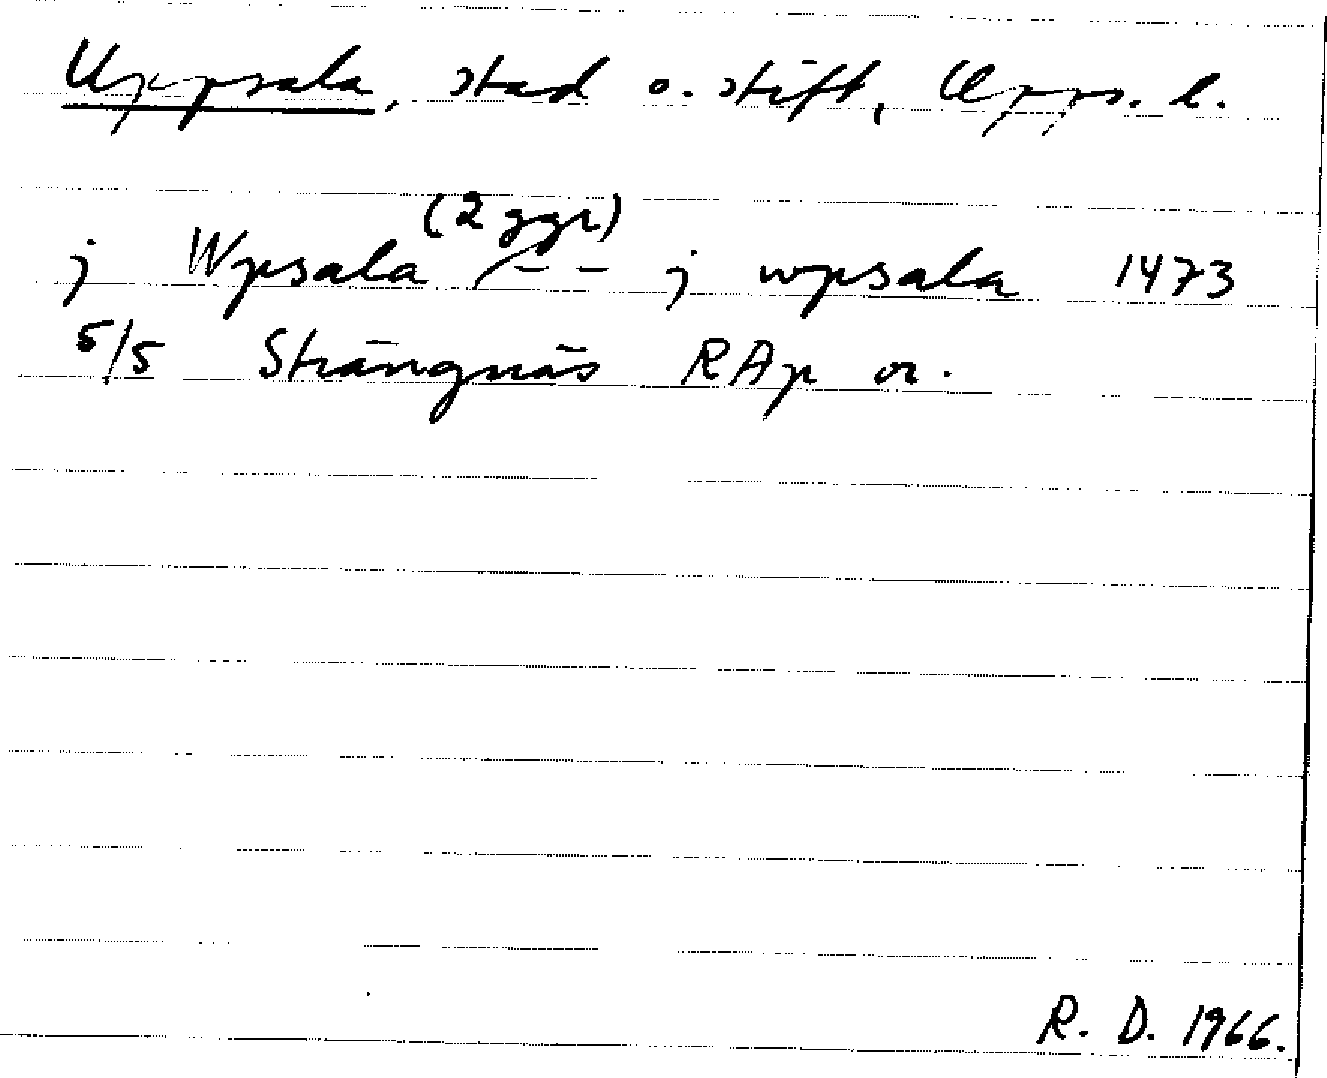 Uppsala, stad o. stift, Upps. l.
j Wpsala (2 ggr) / – – j wpsala 1473
5/5 Strängnäs RAp or.
R. D. 1966.